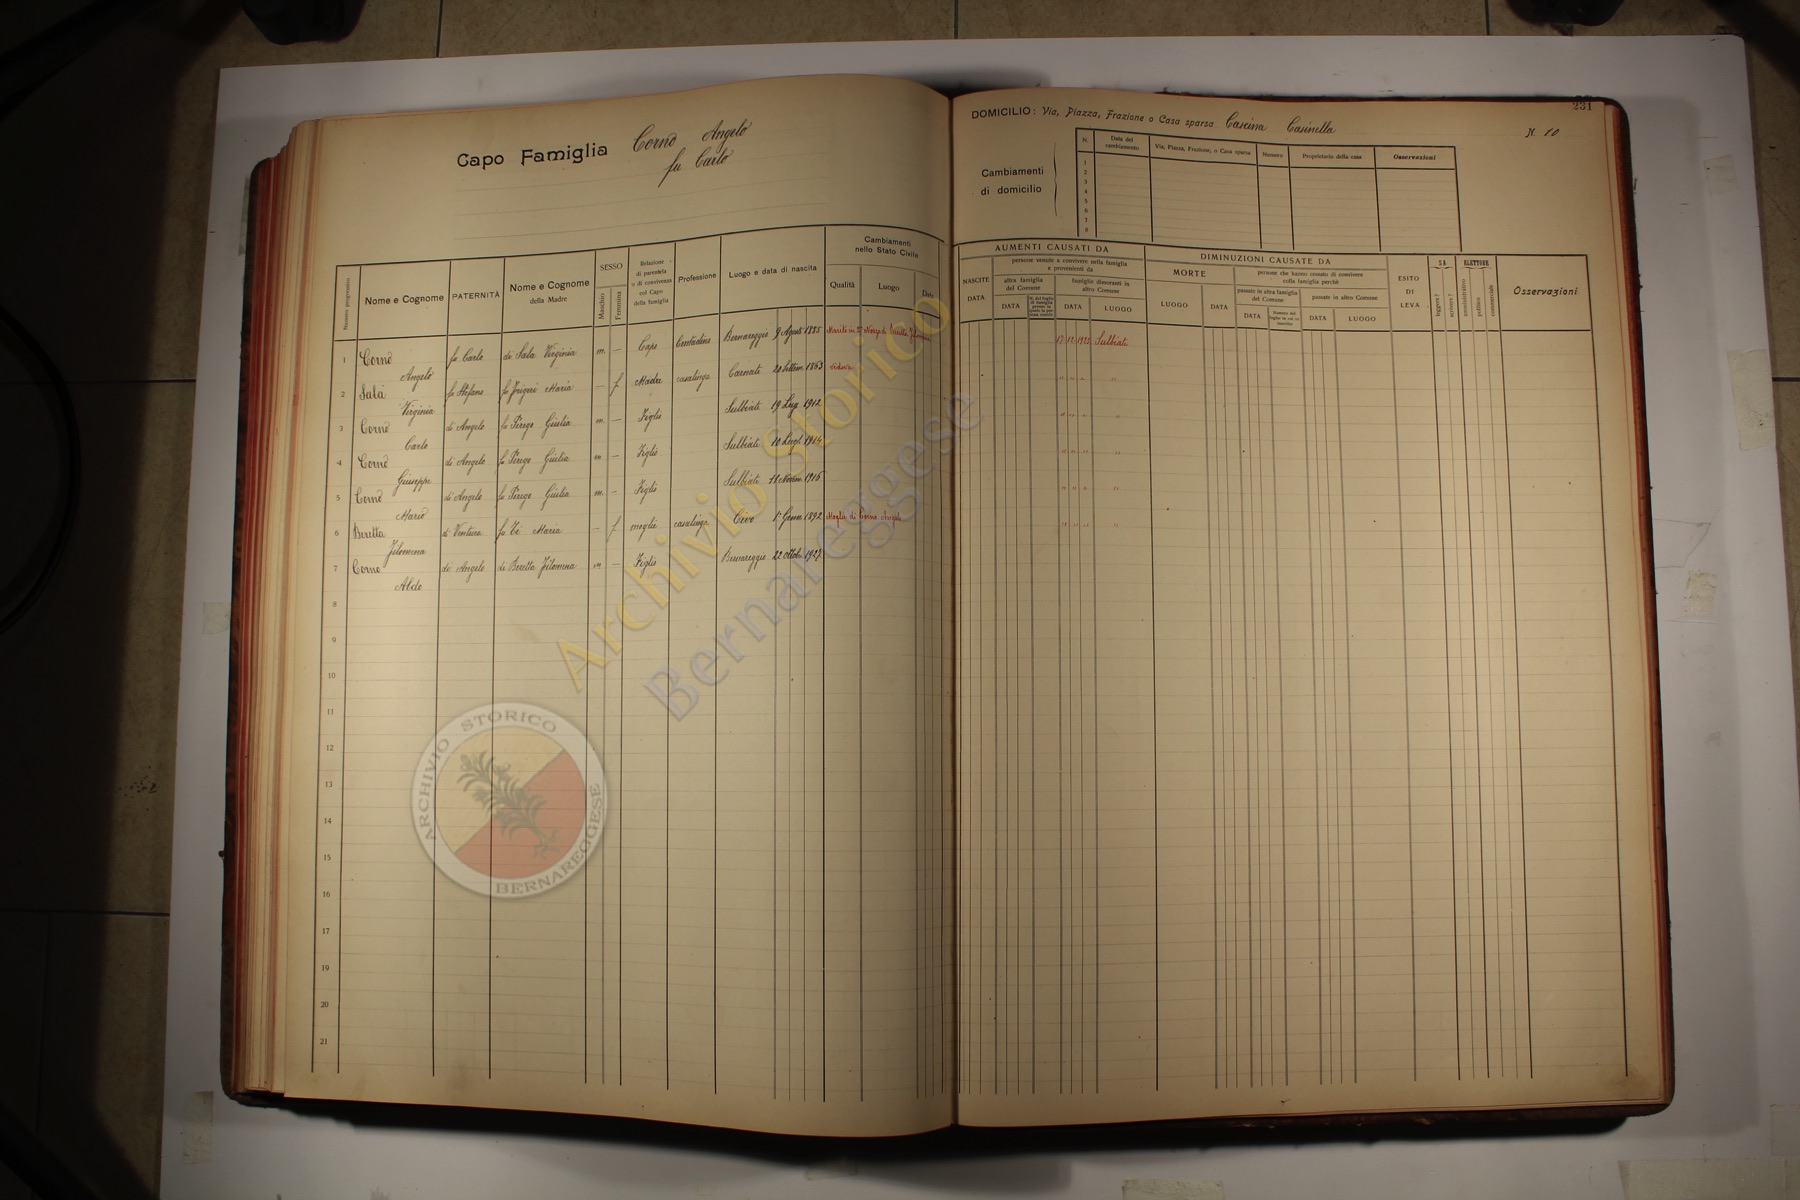 Capo Famiglia Cornò Angelo
fu Carlo
DOMICILIO: Via, Piazza, Frazione o Casa sparsa Cascina Casinetta N. 10
231
Cambiamenti
di domicilio
N. Data del cambiamento Via, Piazza, Frazione, o Casa sparsa Numero Proprietario della casa Osservazioni
1
2
3
4
5
6
7
8
Numero progressivo
Nome e Cognome
PATERNITÀ
Nome e Cognome
della Madre
SESSO
Maschio
Femmina
Relazione
di parentela
o di convivenza
col Capo
della famiglia
Professione
Luogo e data di nascita
Cambiamenti
nello Stato Civile
Qualità
Luogo
Data
AUMENTI CAUSATI DA
NASCITE
DATA
persone venute a convivere nella famiglia
e provenienti da
altra famiglia
del Comune
DATA
famiglie dimoranti in
altro Comune
DATA
LUOGO
DIMINUZIONI CAUSATE DA
MORTE
LUOGO
DATA
persone che hanno cessato di convivere
colla famiglia perchè
passate in altra famiglia
del Comune
DATA
passate in altro Comune
DATA
LUOGO
ESITO
DI
LEVA
SA
leggere?
scrivere?
ELETTORE
amministrativo
politico
commerciale
Osservazioni
1 Cornò Angelo fu Carlo di Sala Virginia m. — Capo Contadino Bernareggio 9 Agosto 1885 Marito in 2e Nozze di Beretta Filomena 17 12 1925 Sulbiate
2 Sala Virginia fu Stefano fu Frigeri Maria — f Madre casalinga Carnate 20 Settem. 1863 vedova " " " "
3 Cornò Carlo di Angelo fu Perego Giulia m. — Figlio Sulbiate 19 Lug 1912 " " " "
4 Cornò Giuseppe di Angelo fu Perego Giulia m — Figlio Sulbiate 10 Lugl. 1914 " " " "
5 Cornò Mario di Angelo fu Perego Giulia m. — Figlio Sulbiate 18 Novem. 1916 " " " "
6 Beretta Filomena di Ventura Maria — f moglie casalinga 1° Genn 1892 Moglie di Cornò Angelo " " " "
7 Corno Aldo di Angelo di Beretta Filomena m — Figlio Bernareggio 22 Ottob. 1927
8
9
10
11
12
13
14
15
16
17
19
20
21
Archivio Storico
Bernareggese
ARCHIVIO STORICO
BERNAREGGESE